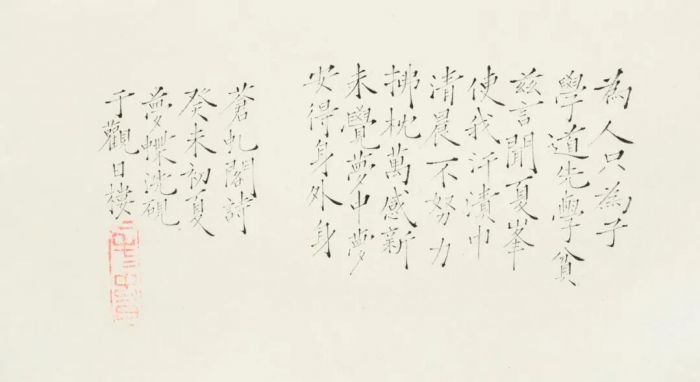 為人只為子
學道先學貧
茲言聞夏峯
使我汗漬巾
清晨不努力
拂枕萬感新
未覺夢中夢
安得身外身
蒼虬閣詩
癸未初夏
夢蝶沈硯
于觀日樓